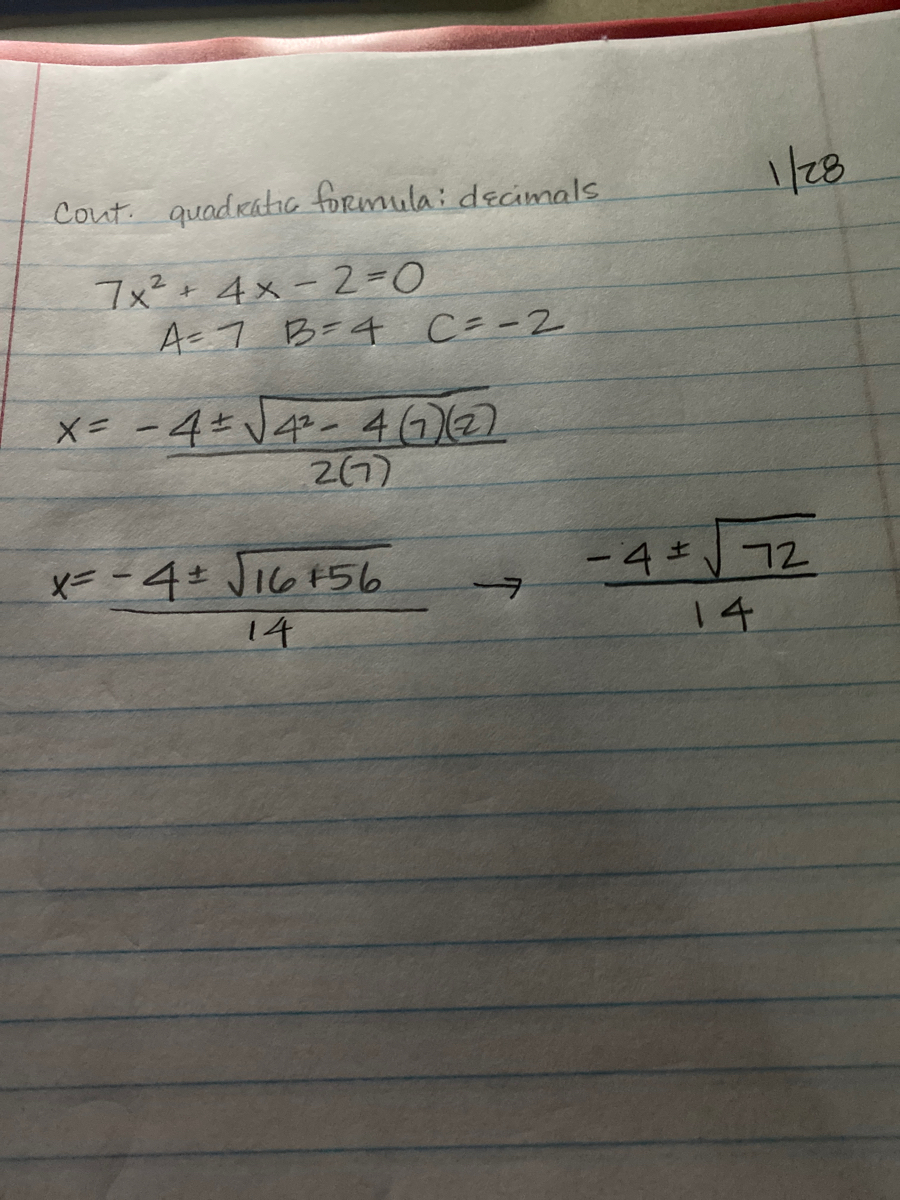 1/28
Cont. quadratic formula: decimals
7x² + 4x - 2 = 0
A = 7 B = 4 C = -2
x = -4 ± √4² - 4(7)(2)
2(7)
x = -4 ± √16 + 56 → -4 ± √72
14 14